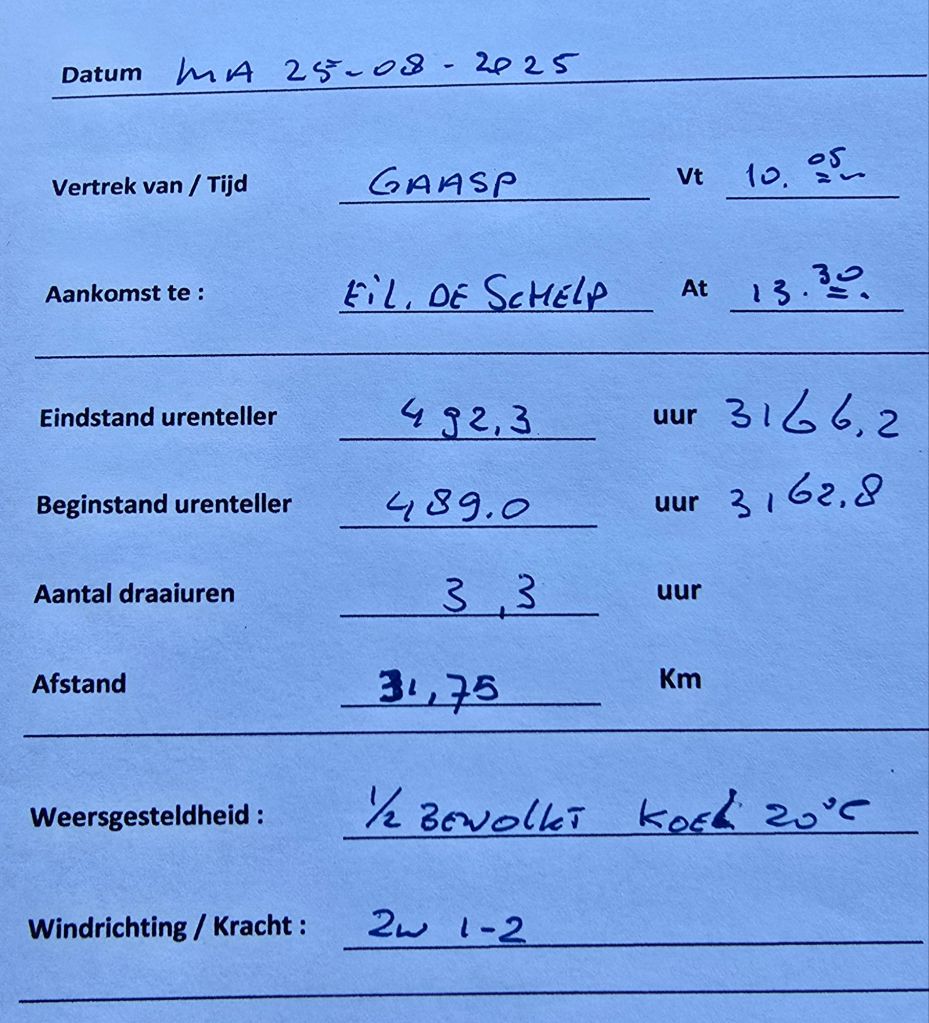 Datum MA 25-08-2025
Vertrek van / Tijd GAASP Vt 10.05
Aankomst te : EiL. DE SCHELP At 13.30
Eindstand urenteller 492,3 uur 3166,2
Beginstand urenteller 489.0 uur 3162.8
Aantal draaiuren 3,3 uur
Afstand 31,75 Km
Weersgesteldheid : 1/2 BEWOLKT KOEL 20°C
Windrichting / Kracht : ZW 1-2